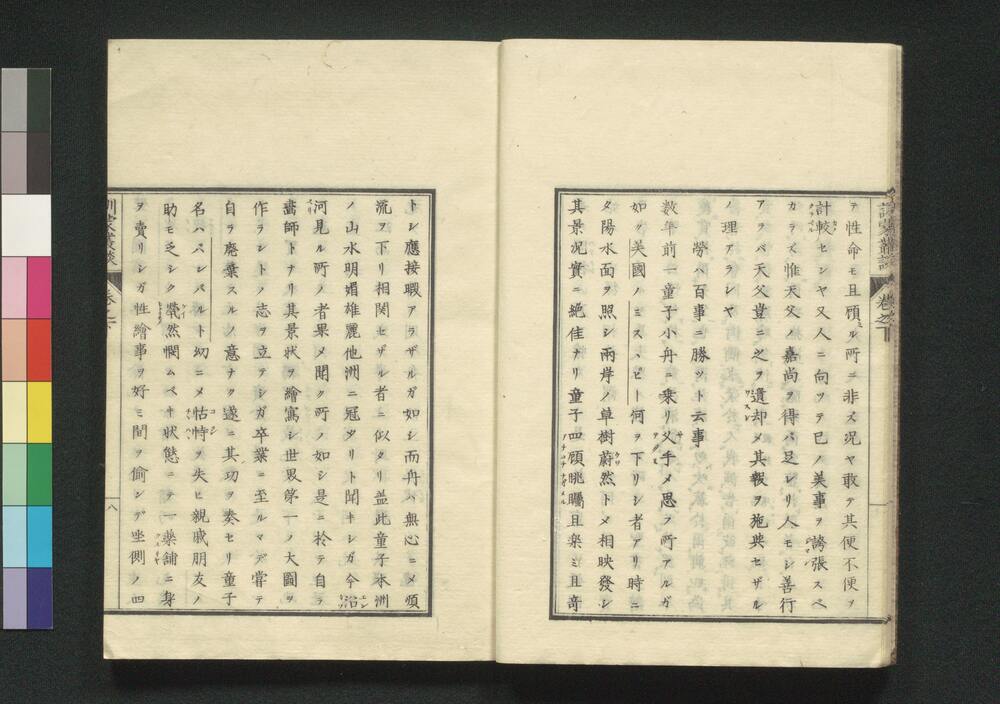 テ性命モ且顧ル所ニ非ス況ヤ敢テ其便不便ヲ
計較センヤ又人ニ向ツテ已ノ美事ヲ誇張スベ
カラズ惟天父ノ嘉尚ヲ得バ足レリ人モシ善行
アラバ天父豈ニ之ヲ遺却メ其報ヲ施與セザル
ノ理アランヤ
勞ハ百事ニ勝ツト云事
数年前一童子小舟ニ乗リ父手メ思フ所アルガ
如ク美國ノミススピー何ヲ下リシ者アリ時ニ
夕陽水面ヲ照シ兩岸ノ草樹蔚然トメ相映發シ
其景况實ニ絶佳ナリ童子四顧眺矚且楽ミ且奇
トシ應接暇アラザルガ如シ而舟ハ無心ニメ順
流ヲ下リ相関セザル者ニ似タリ盖此童子本洲
ノ山水明媚雄麗他洲ニ冠タリト聞キシガ今沿
河見ル所ノ者果メ聞ク所ノ如シ是ニ於テ自ラ
畵師トナリ其景状ヲ繪寫シ世界第一ノ大圖ヲ
作ラントノ志ヲ立テシガ卒業ニ至ルマデ嘗テ
自ラ廃棄スルノ意ナク遂ニ其功ヲ奏セリ童子
名ハバンバルト幼ニメ怙恃ヲ失ヒ親戚朋友ノ
助モ乏シク煢然憫ムベキ状態ニテ一藥舗ニ身
ヲ賣リシガ性繪事ヲ好ミ間ヲ偷ンデ坐側ノ四
訓蒙叢談
卷之下
八